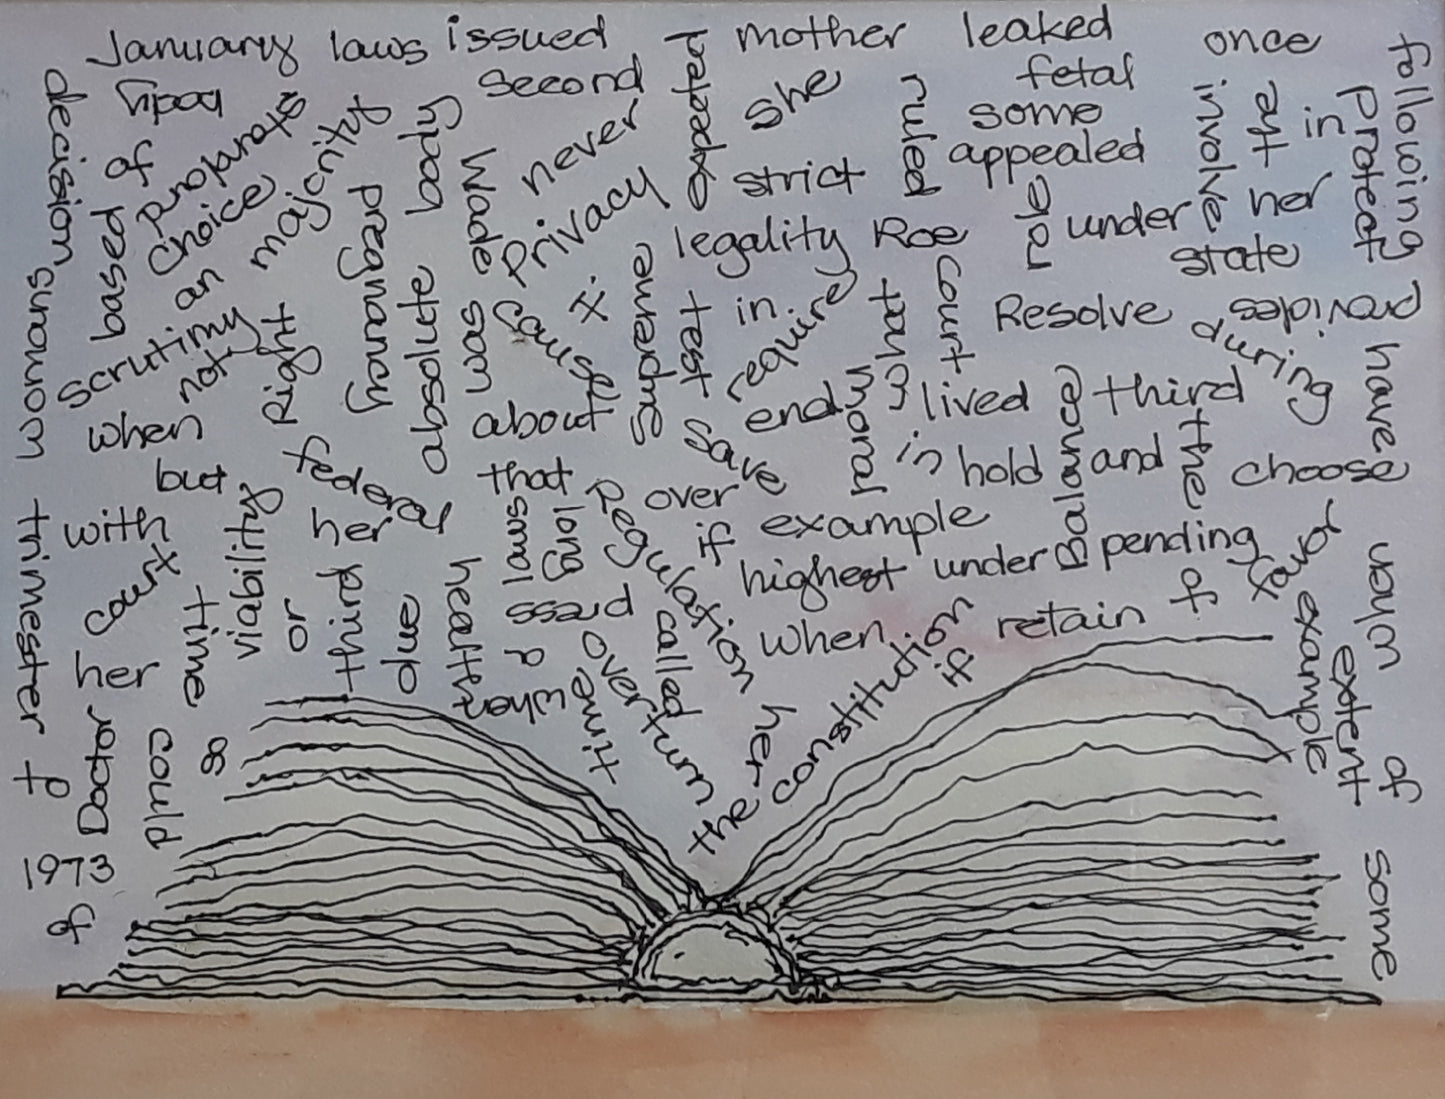 January laws issued mother leaked once following
decisions body standards second protected she fetal
of proponents majority body never ruled some involve the in protect
based choice pregnancy Wade privacy strict appealed
an absolute legality Roe under her
womans scrutiny right son supreme test in court state
not causes require Resolve during provides
when about end lived third have
but federal that save moral in hold Balance and the choose
trimester with her small long Regulation over if example
court viability highest under pending
time or third due health called when retain of woman
her a when overturn constitution if example extent
Doctor could time her of
1973 the
of some